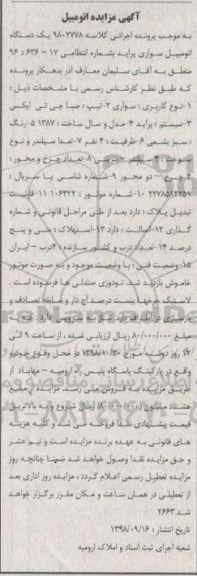 آگهی مزایده اتومبیل
به موجب پرونده اجرائی کلاسه ۹۸۰۲۷۷۸ یک دستگاه
اتومبیل سواری پراید بشماره انتظامی ۱۷ - ۶۳۶ د ۹۶
متعلق به آقای سلیمان معارف آذر بدهکار پرونده
که طبق نظر کارشناس رسمی با مشخصات ذیل :
۱-نوع کاربری : سواری ۲-تیپ : صبا جی تی ایکس
۳-سیستم : پراید ۴-مدل و سال ساخت : ۱۳۸۷ ۵-رنگ
: سبز یشمی ۶-ظرفیت : ۴ نفر ۷-تعداد سیلندر و نوع
سوخت : ۴ سیلندر - بنزینی ۸-تعداد چرخ و محور :
۴ چرخ - دو محور ۹-شماره شاسی یا سریال :
۱۰-شماره موتور : ۱۱-قابلیت
تبدیل پلاک : دارد بعد از طی مراحل قانونی و شماره
گذاری ۱۲-اصالت : دارد ۱۳-استهلاک : سی و پنج
درصد ۱۴-تعداد درب و کشور سازنده : ۴درب - ایران
۱۵-وضعیت فنی : با وضعیت موجود و بنه صورت موتور
خاموش بازدید شد. تودوزی صندلی ها فرسوده است .
لاستیک چرخها بیست درصد آج دار و سابقه تصادف و
مبلغ ۸۰/۰۰۰/۰۰۰ ریال ارزیابی شده ، از ساعت ۹ الی
۱۲ روز دوشنبه مورخ ۱۳۹۸/۱۰/۳۰ در محل وقوع خودرو
واقع در پارکینگ پاسگاه پلیس راه ارومیه - مهاباد از
طریق مزایده به فروش می رسد. مزایده از مبلغ
هشتاد میلیون (۸۰/۰۰۰/۰۰۰) ریال شروع و به بالاترین
قیمت پیشنهادی نقدا فروخته می شد و کلیه هزینه
های قانونی به عهده برنده مزایده است و نیم عشر
و حق مزایده نقدا وصول خواهد شد ضمنا چنانچه روز
مزایده تعطیل رسمی اعلام گردد ، مزایده روز اداری بعد
از تعطیلی در همان ساعت و مکان مقرر برگزار خواهد
شد.۲۶۶۳
تاریخ انتشار : ۱۳۹۸/۰۹/۱۶
شعبه اجرای ثبت اسناد و املاک ارومیه